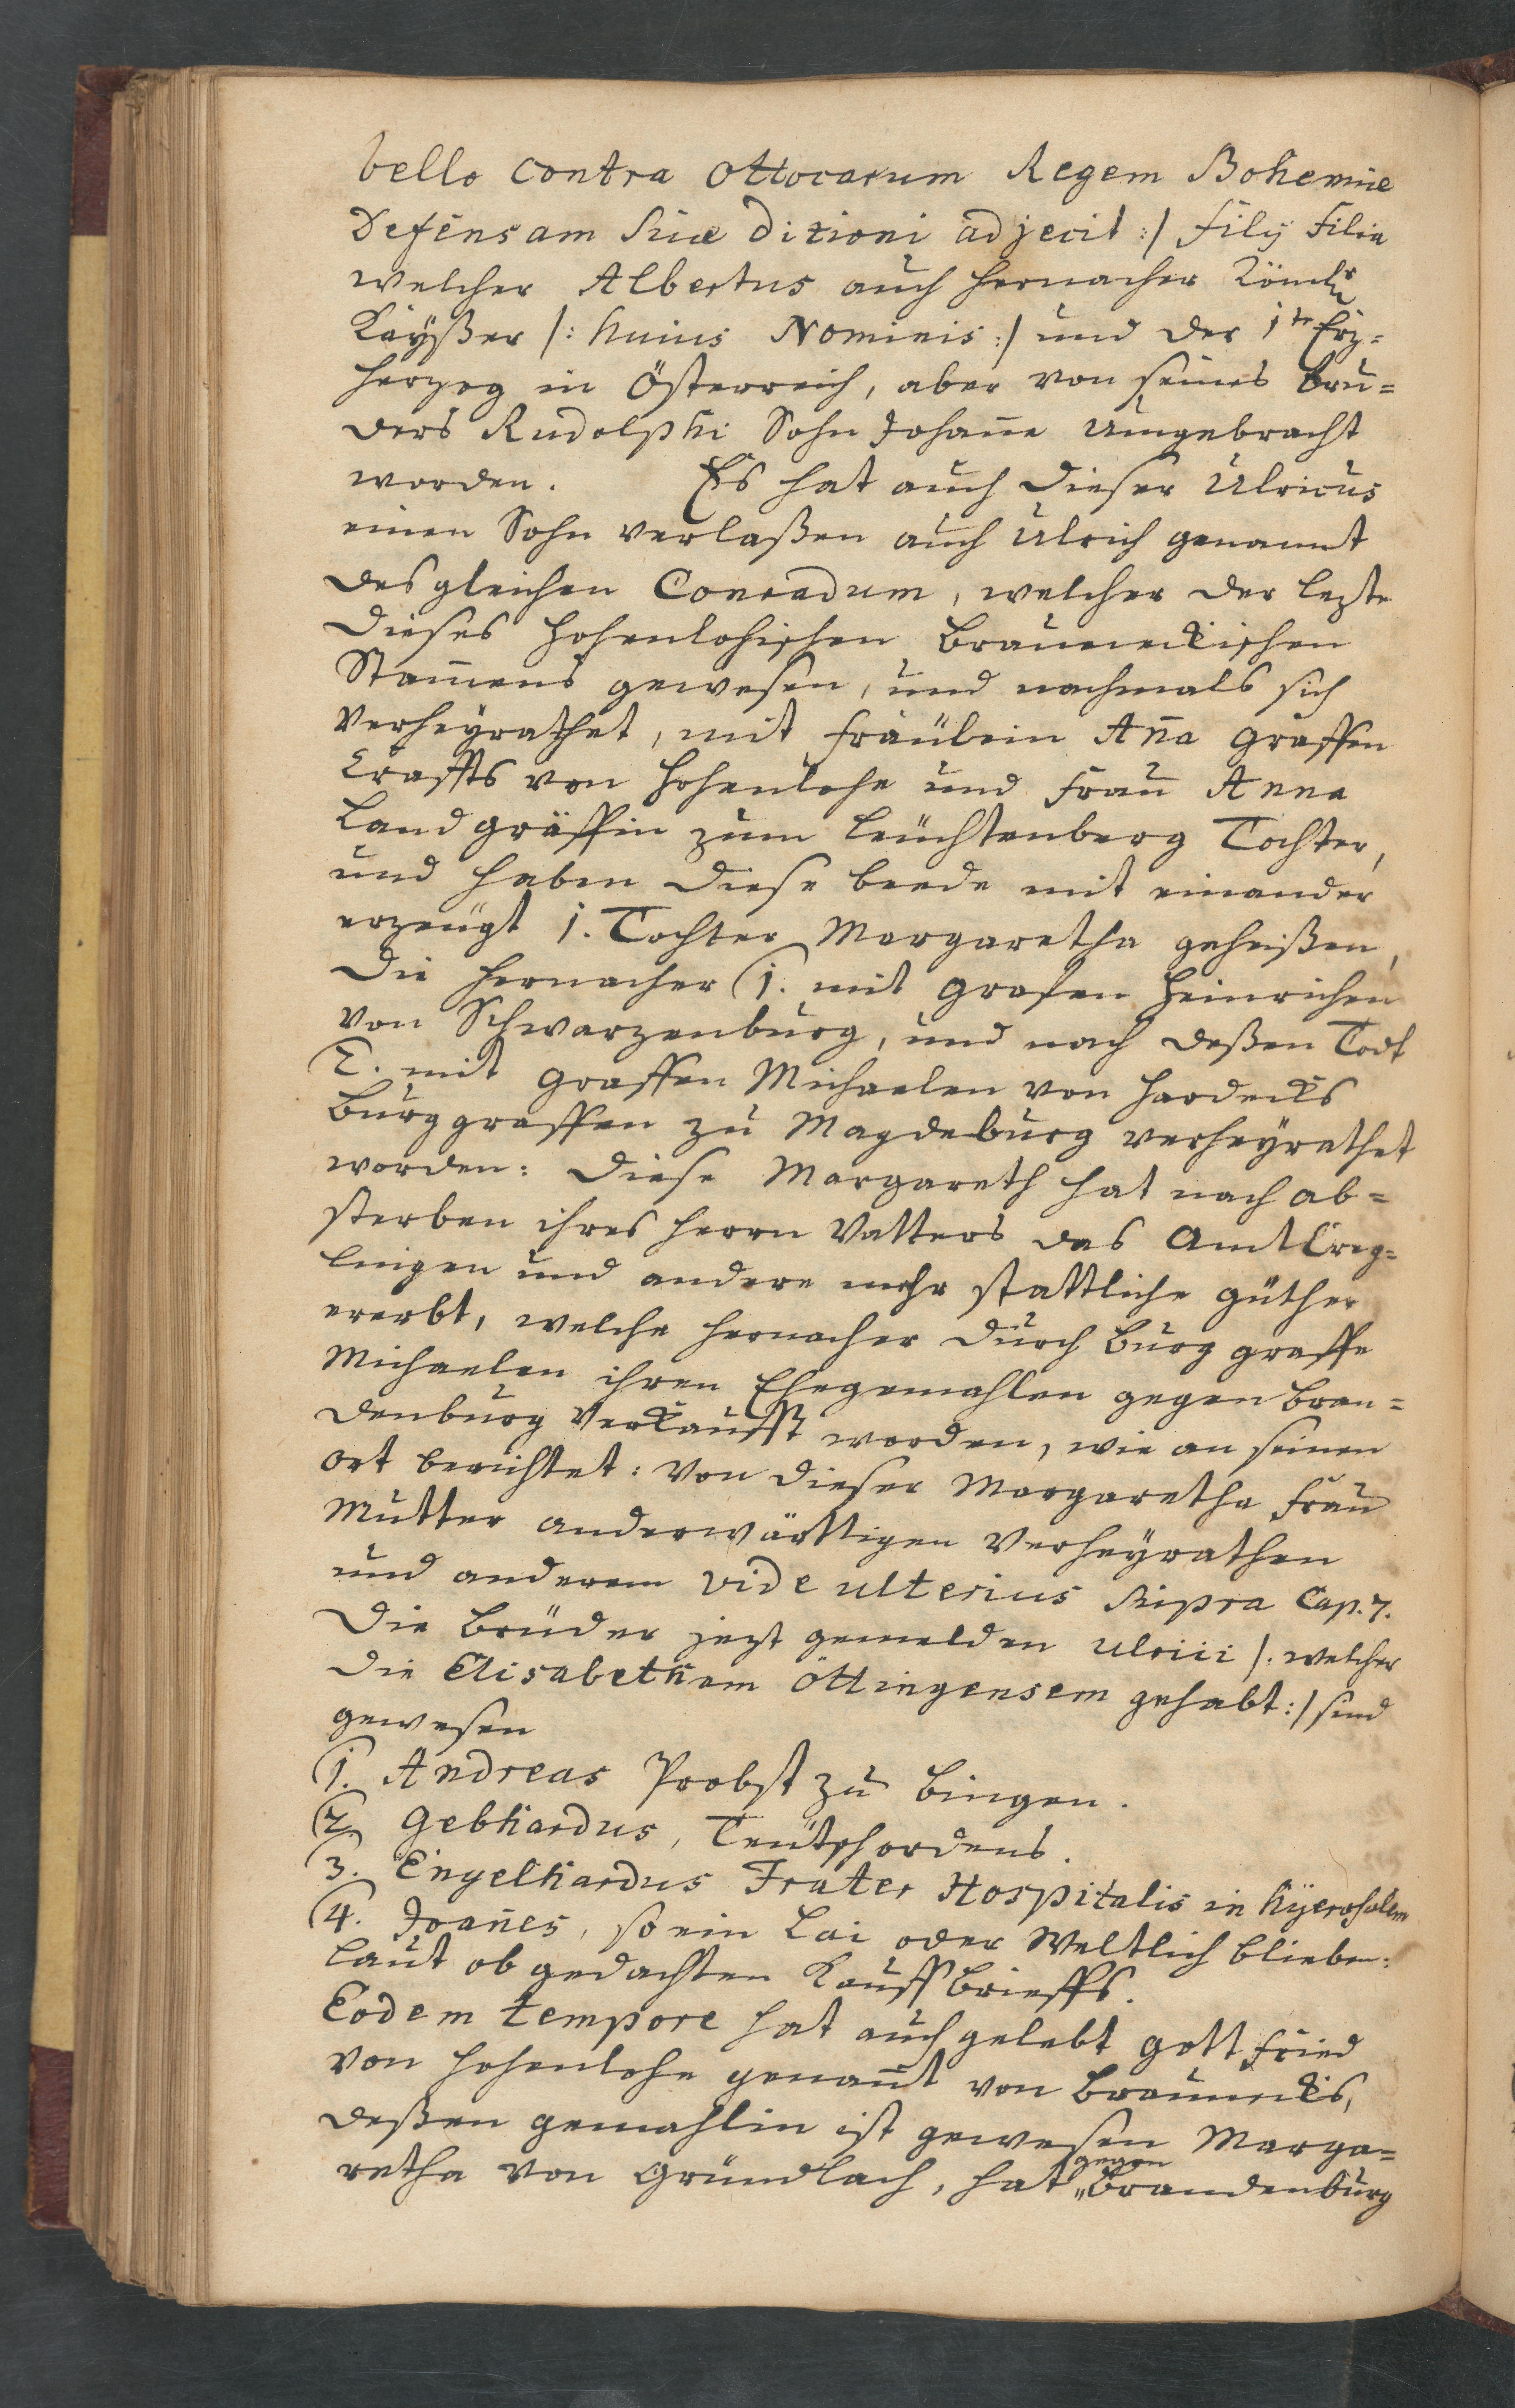 bello contra Ottocarum Regem Bohemiæ
Defensam suæ ditioni adjecit :/ filij Filia
welcher Albertus auch hernacher Römlr
Kaÿßer /: huius Nominis :/ und der 1te Erz=
herzog in Österreich, aber von seines bru=
ders Rudolphi Sohn Johañe umgebracht
worden. Es hat auch dieser Ulricus
einen Sohn verlaßen auch Ulrich genannt
desgleichen Conradum, welcher der lezte
dieses Hohenlohischen Brauneckischen
Stam̃ens gewesen, und nachmals sich
verheÿrathet, mit fräulein Añа Graffen
Craffts von Hohenlohe und Frau Anna
Landgräffin zum Leuchtenberg Tochter,
und haben diese beede mit einander
erzeugt 1. Tochter Margaretha geheißen,
die hernacher (1. mit Grafen Heinrichen
von Schwarzenburg, und nach deßen Todt
(2. mit Graffen Michaelen von Hardecks
Burggraffen zu Magdeburg verheÿrathet
worden: diese Margareth hat nach ab=
sterben ihres Herrn Vatters das Amt Creg=
lingen und andere mehr stattliche güther
ererbt, welche hernacher durch Burg graffe
Michaelen ihren Ehegemahlen gegen Bran=
denburg Verkaufft worden, wie an seinen
ort berichtet: Von dieser Margaretha Frau
Mutter anderwärttigen Verheÿrathen
und anderem vide ulterius supra Cap. 7.
Die Brüder jezt gemelden Ulrici /: welcher
die Elisabetham Öttingensem gehabt :/ sind
gewesen
(1. Andreas Probst zu Bingen.
(2. Gebhardus, Teutschordens.
(3. Engelhardus Frater Hospitalis in Hÿerosolem
(4. Joañes, so ein Lai oder Weltlich blieben:
laut ob gedachten Kauff Brieffs.
Eodem tempore hat auch gelebt Gottfried
von Hohenlohe genañt von Braunecks,
deßen gemahlin ist gewesen Marga=
retha von Gründlach, hat gegen Brandenburg